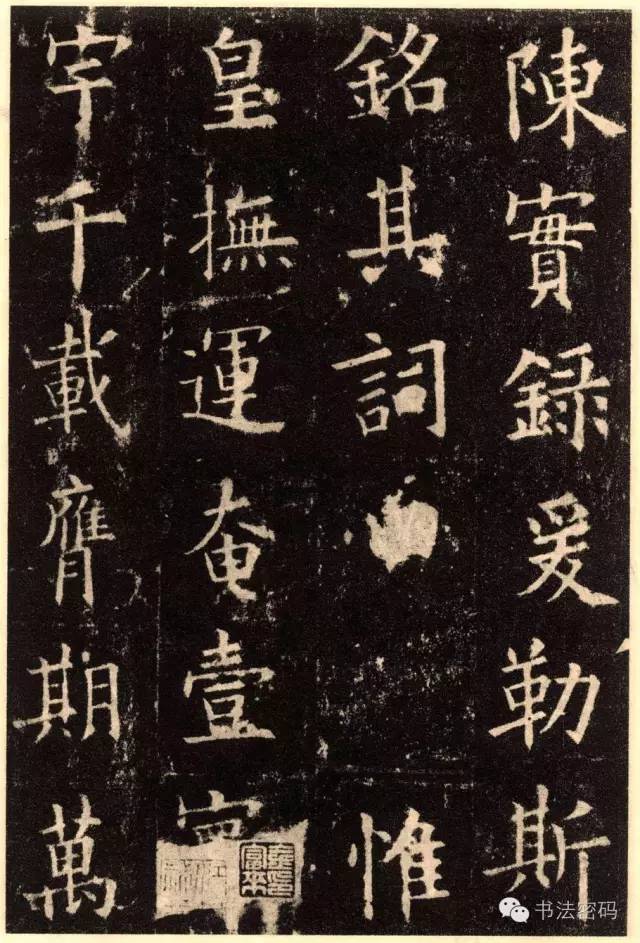 陳實錄爰勒斯
銘其詞惟
皇撫運奄壹
宇千載膺期萬
书法密码